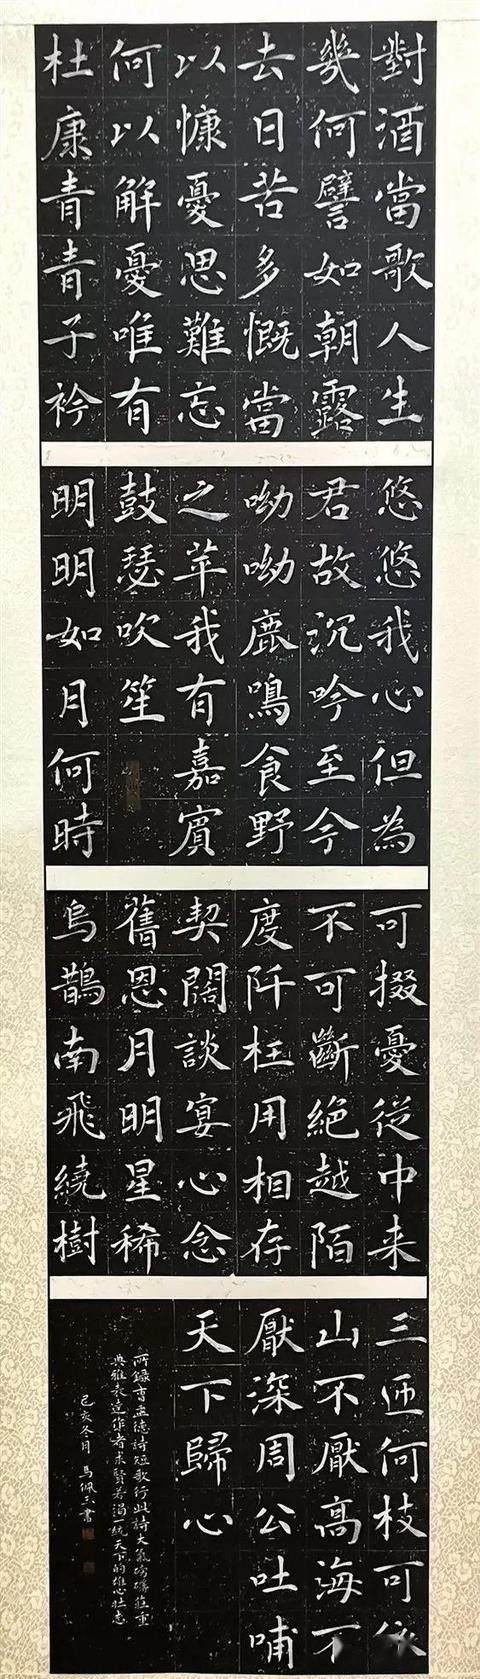 對酒當歌人生
幾何譬如朝露
去日苦多慨當
以慷憂思難忘
何以解憂唯有
杜康青青子衿
悠悠我心但為
君故沉吟至今
呦呦鹿鳴食野
之苹我有嘉賓
鼓瑟吹笙
明明如月何時
可掇憂從中来
不可斷絕越陌
度阡枉用相存
契闊談宴心念
舊恩月明星稀
烏鵲南飛繞樹
三匝何枝可依
山不厭高海不
厭深周公吐哺
天下歸心
所錄曹孟德詩短歌行此詩大氣磅礴莊重
典雅表達作者求賢若渴一統天下的雄心壯志
己亥冬月 馬佩三書